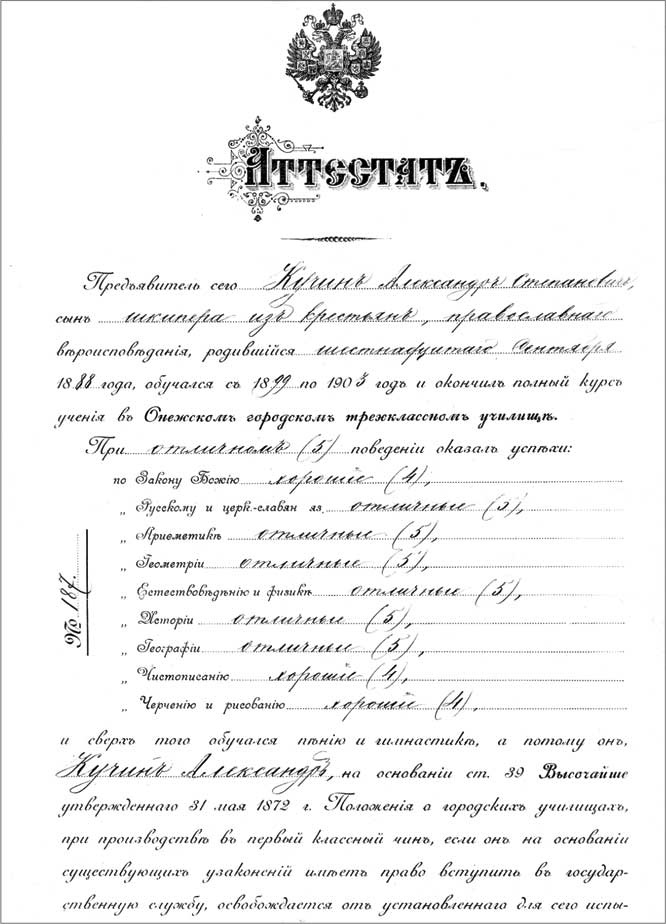 Аттестатъ.
Предъявитель сего Кучинъ Александръ Степановичъ,
сынъ шкипера изъ крестьянъ, православнаго
вѣроисповѣданія, родившійся шестнадцатаго Сентября
1888 года, обучался съ 1899 по 1903 годъ и окончилъ полный курсъ
ученія въ Онежскомъ городскомъ трехклассномъ училищѣ.
При отличномъ (5) поведеніи оказалъ успѣхи:
по Закону Божію хорошіе (4),
„ Русскому и церк.-славян яз отличные (5),
„ Ариѳметикѣ отличные (5),
„ Геометріи отличные (5),
„ Естествовѣдѣнію и физикѣ отличные (5),
„ Исторіи отличные (5),
„ Географіи отличные (5),
„ Чистописанію хорошіе (4),
„ Черченію и рисованію хорошіе (4),
№ 187.
и сверхъ того обучался пѣнію и гимнастикѣ, а потому онъ,
Кучинъ Александръ, на основаніи ст. 39 Высочайше
утвержденнаго 31 мая 1872 г. Положенія о городскихъ училищахъ,
при производствѣ въ первый классный чинъ, если онъ на основаніи
существующихъ узаконеній имѣетъ право вступить въ государ-
ственную службу, освобождается отъ установленнаго для сего испы-